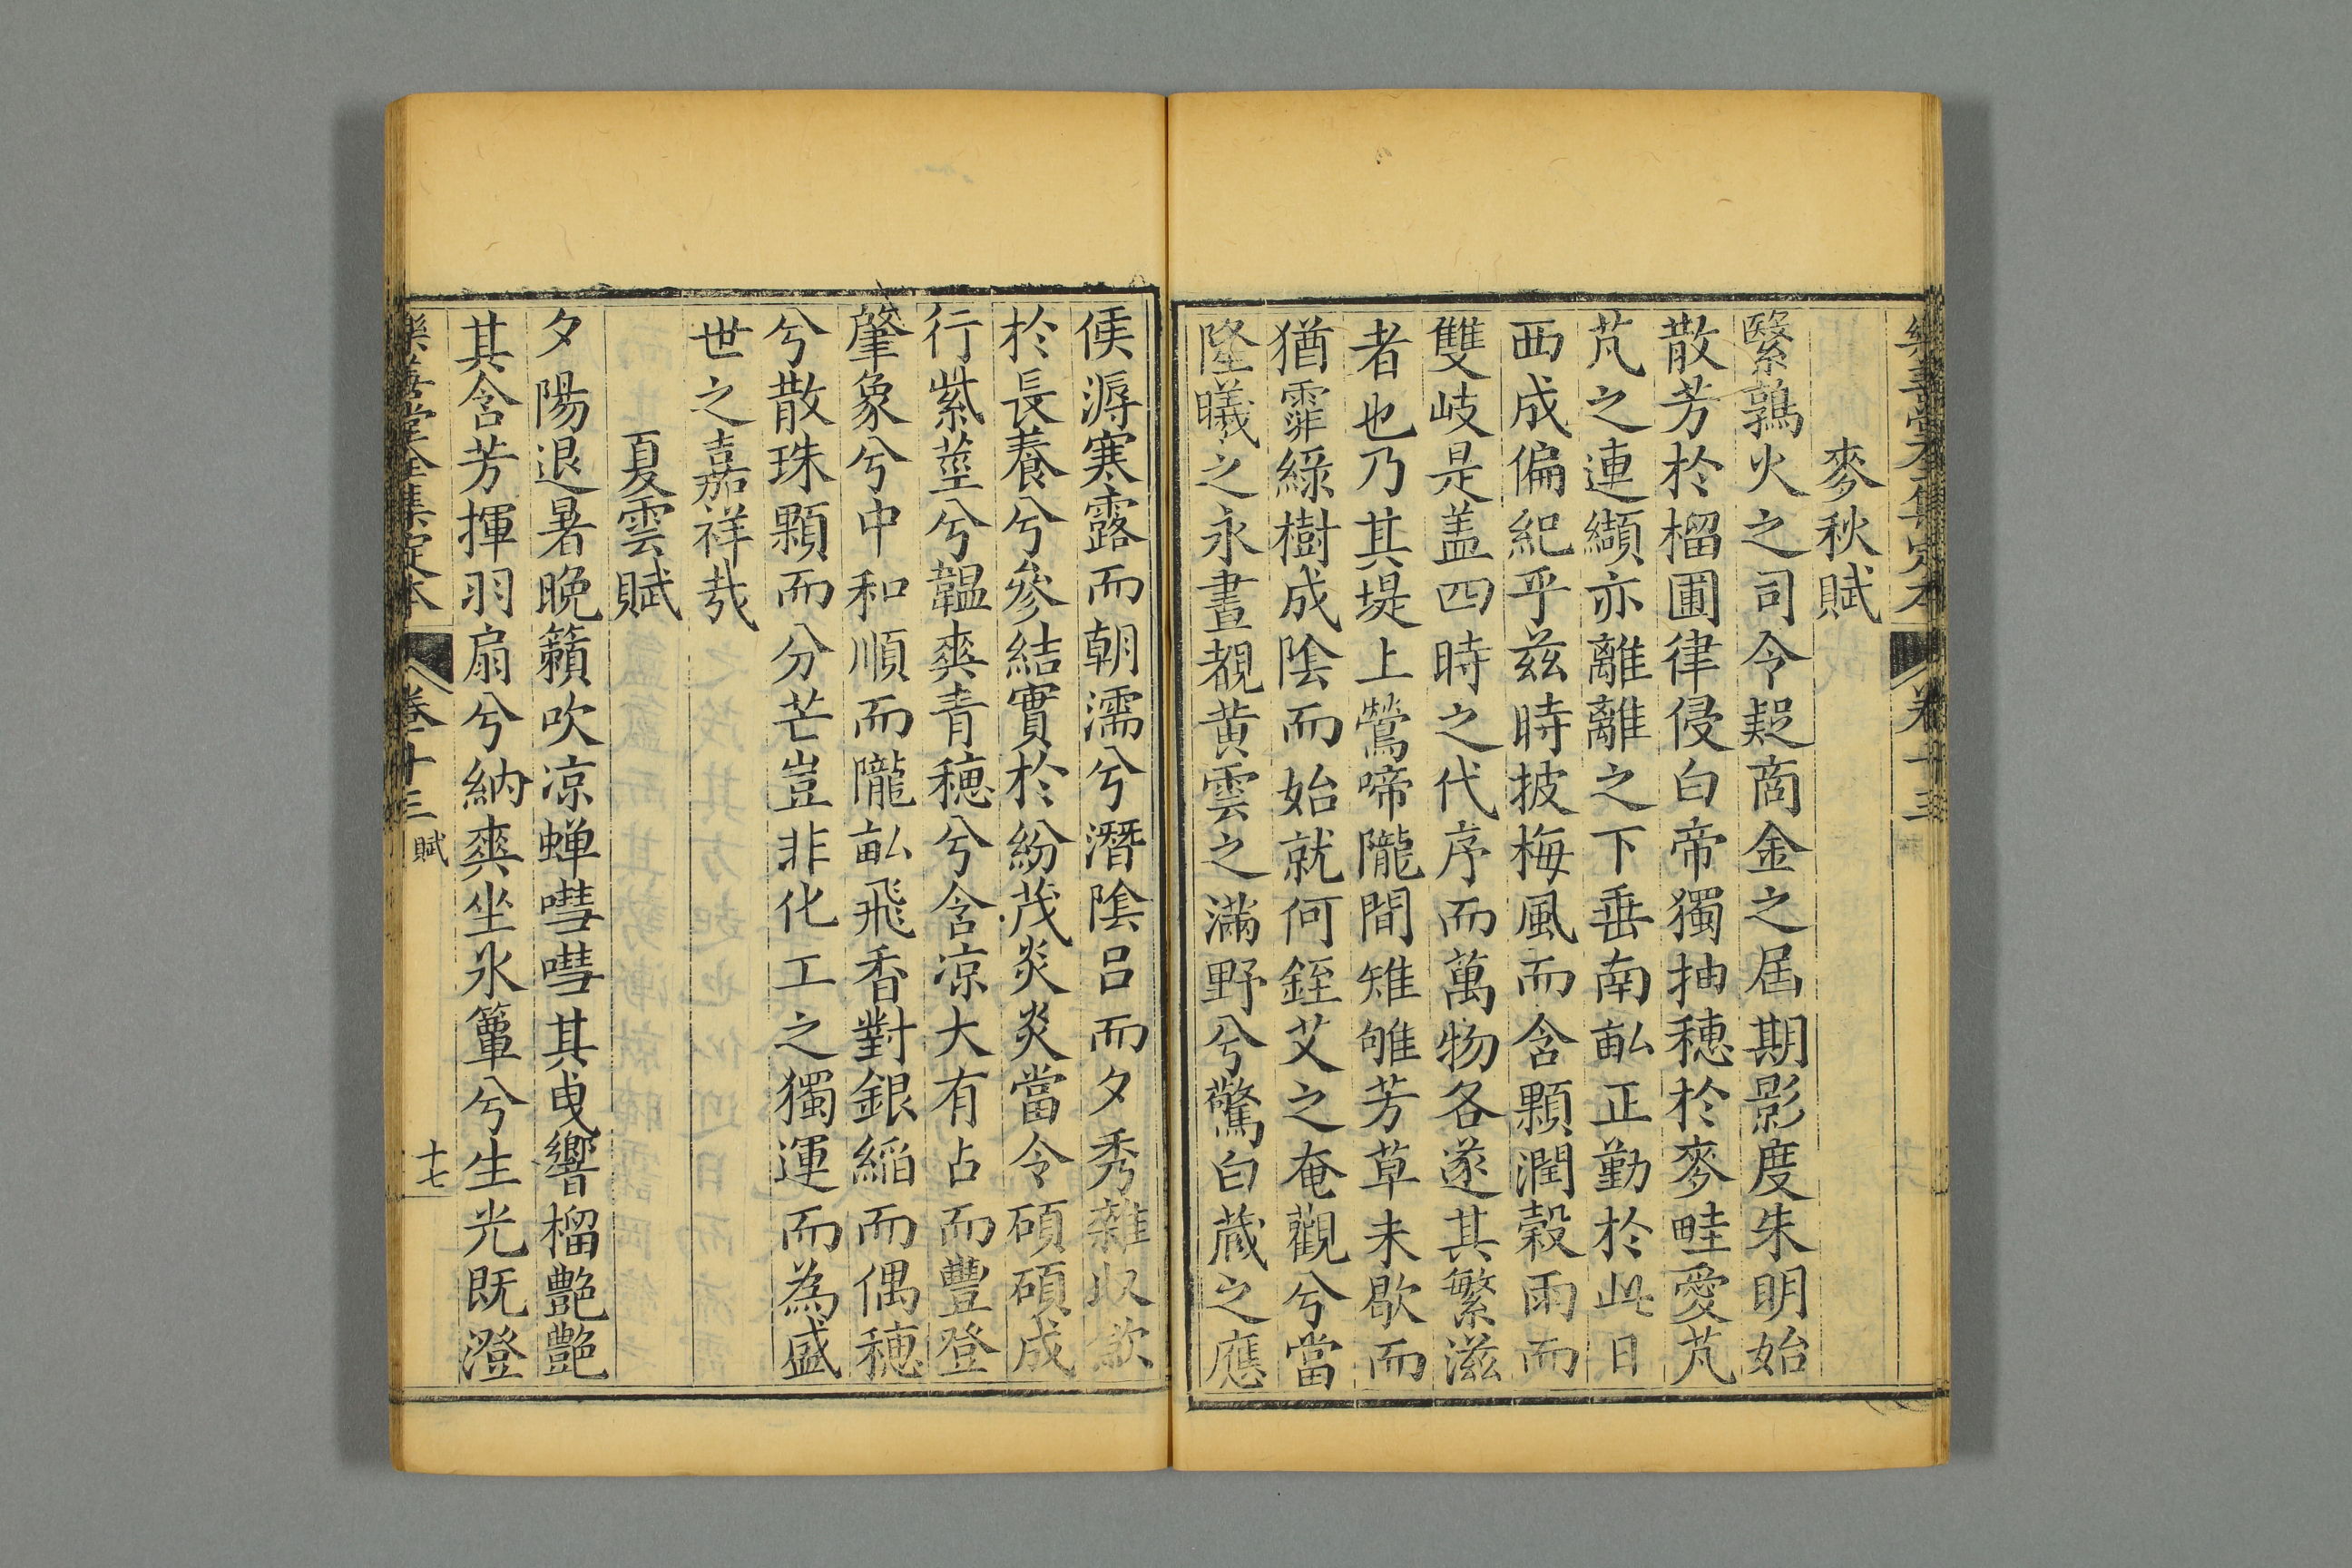 樂善堂全集定本 卷十三
麥秋賦
繄鶉火之司令疑商金之届期影度朱明始
散芳於榴圃律侵白帝獨抽穗於麥畦愛芃
芃之連纈亦離離之下垂南畝正勤於此日
西成偏紀乎兹時披梅風而含顆潤榖雨而
雙岐是盖四時之代序而萬物各遂其繁滋
者也乃其堤上鶯啼隴間雉雊芳草未歇而
猶霏綠樹成陰而始就何銍艾之奄觀兮當
隆曦之永晝覩黄雲之滿野兮驚白蔵之應
候溽寒露而朝濡兮潛陰吕而夕秀雜収歛
於長養兮參結實於紛茂炎炎當令碩碩成
行紫莖兮韞爽青穗兮含凉大有占而豐登
肇象兮中和順而隴畝飛香對銀縚而偶穗
兮散珠顆而分芒豈非化工之獨運而為盛
世之嘉祥哉
夏雲賦
夕陽退暑晚籟吹凉蝉嘒嘒其曳響榴艷艷
其含芳揮羽扇兮納爽坐氷簟兮生光既澄
樂善堂全集定本 卷十三 賦 十七